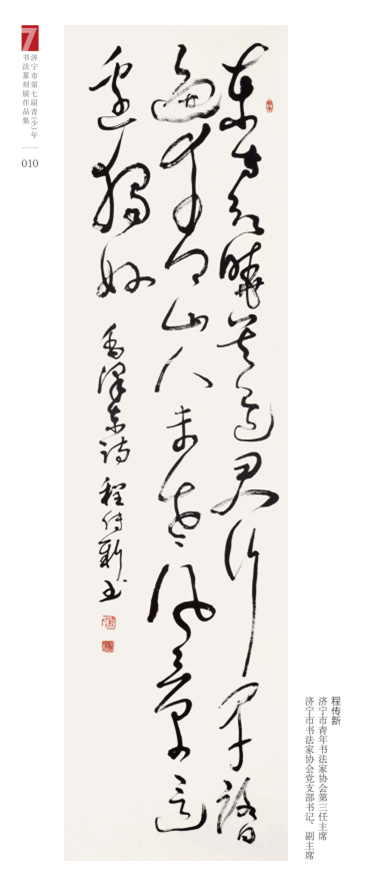 7
济宁市第七届青(少)年
书法篆刻展作品集
010
東方欲曉莫道君行早踏
遍青山人未老風景這
邊獨好
毛澤東詩 程傳新書
程传新
济宁市青年书法家协会第三任主席
济宁市书法家协会党支部书记、副主席